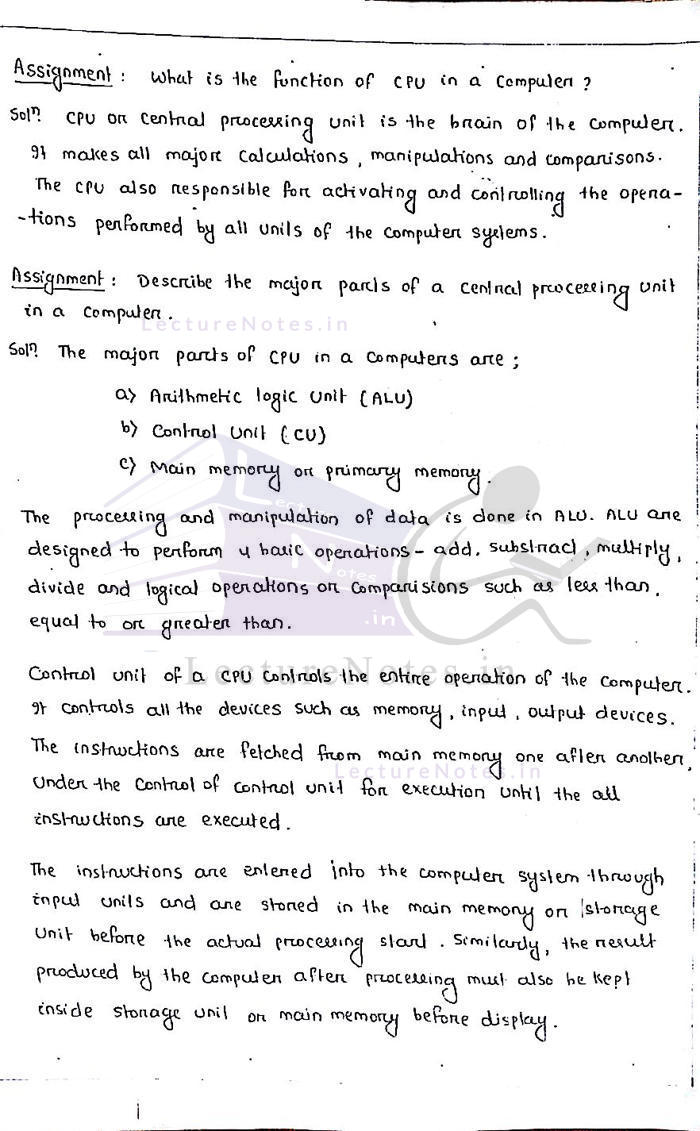 Assignment : What is the function of CPU in a Computer ?
Solⁿ. CPU or central processing unit is the brain of the computer.
It makes all major calculations, manipulations and comparisons.
The CPU also responsible for activating and controlling the opera-
-tions performed by all units of the computer systems.
Assignment : Describe the major parts of a central processing unit
in a computer.
LectureNotes.in
Solⁿ. The major parts of CPU in a computers are ;
a) Arithmetic logic unit (ALU)
b) Control Unit (CU)
c) Main memory or primary memory.
The processing and manipulation of data is done in ALU. ALU are
designed to perform 4 basic operations - add, substract, multiply,
divide and logical operations or comparisions such as less than,
equal to or greater than.
Lecture
Notes
.in
LectureNotes.in
Control unit of a CPU controls the entire operation of the computer.
It controls all the devices such as memory, input, output devices.
The instructions are fetched from main memory one after another,
LectureNotes.in
under the control of control unit for execution until the all
instructions are executed.
The instructions are entered into the computer system through
input units and are stored in the main memory or storage
unit before the actual processing start. Similarly, the result
produced by the computer after processing must also be kept
inside storage unit or main memory before display.